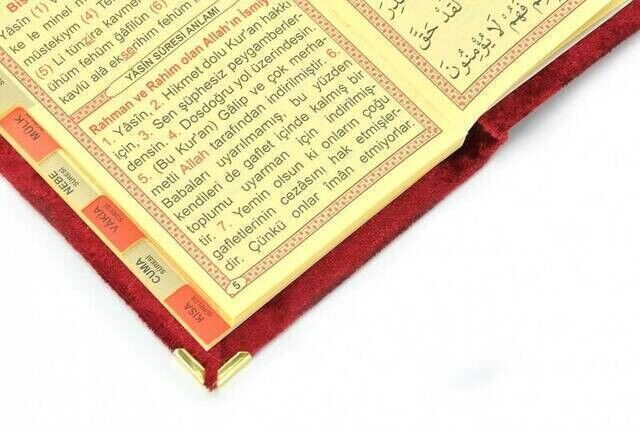 Yâsîn (1)
ke le minel m
müstekıym (4) Te
(5) Li tünzira kavme
ühüm fehüm ğâfilûn (6)
kavlü alâ ekserihim fehüm
YÂSİN SÛRESİ ANLAMI
Rahman ve Rahim olan Allah'ın İsmiy
1. Yâsîn, 2. Hikmet dolu Kur'an hakkı
için, 3. Sen şüphesiz peygamberler-
densin. 4. Dosdoğru yol üzerindesin.
5. (Bu Kur'an) Gâlip ve çok merha-
metli Allah tarafından indirilmiştir. 6.
Babaları uyarılmamış, bu yüzden
kendileri de gaflet içinde kalmış bir
toplumu uyarman için indirilmiş-
tir. 7. Yemin olsun ki onların çoğu
gafletlerinin cezasını hak etmişler-
dir. Çünkü onlar îmân etmiyorlar.
5
لَقَدْ حَقَّ
فَهُمْ لَا يُؤْمِنُونَ
MÜLK
NEBE
SÛRESİ
VÂKIA
SÛRESİ
CUMA
SÛRESİ
KISA
SÛRELER